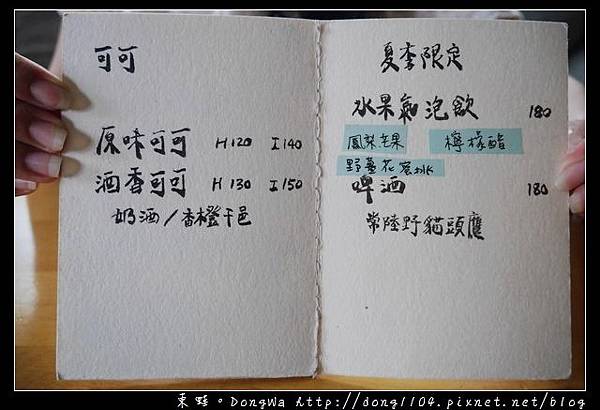 可可
原味可可 H120 I140
酒香可可 H130 I150
奶酒/香橙干邑
夏季限定
水果氣泡飲 180
鳳梨芒果 檸檬醋
野薑花蜜桃
啤酒 180
常陸野貓頭鷹
東蛙。DongWa http://dong1104.pixnet.net/blog